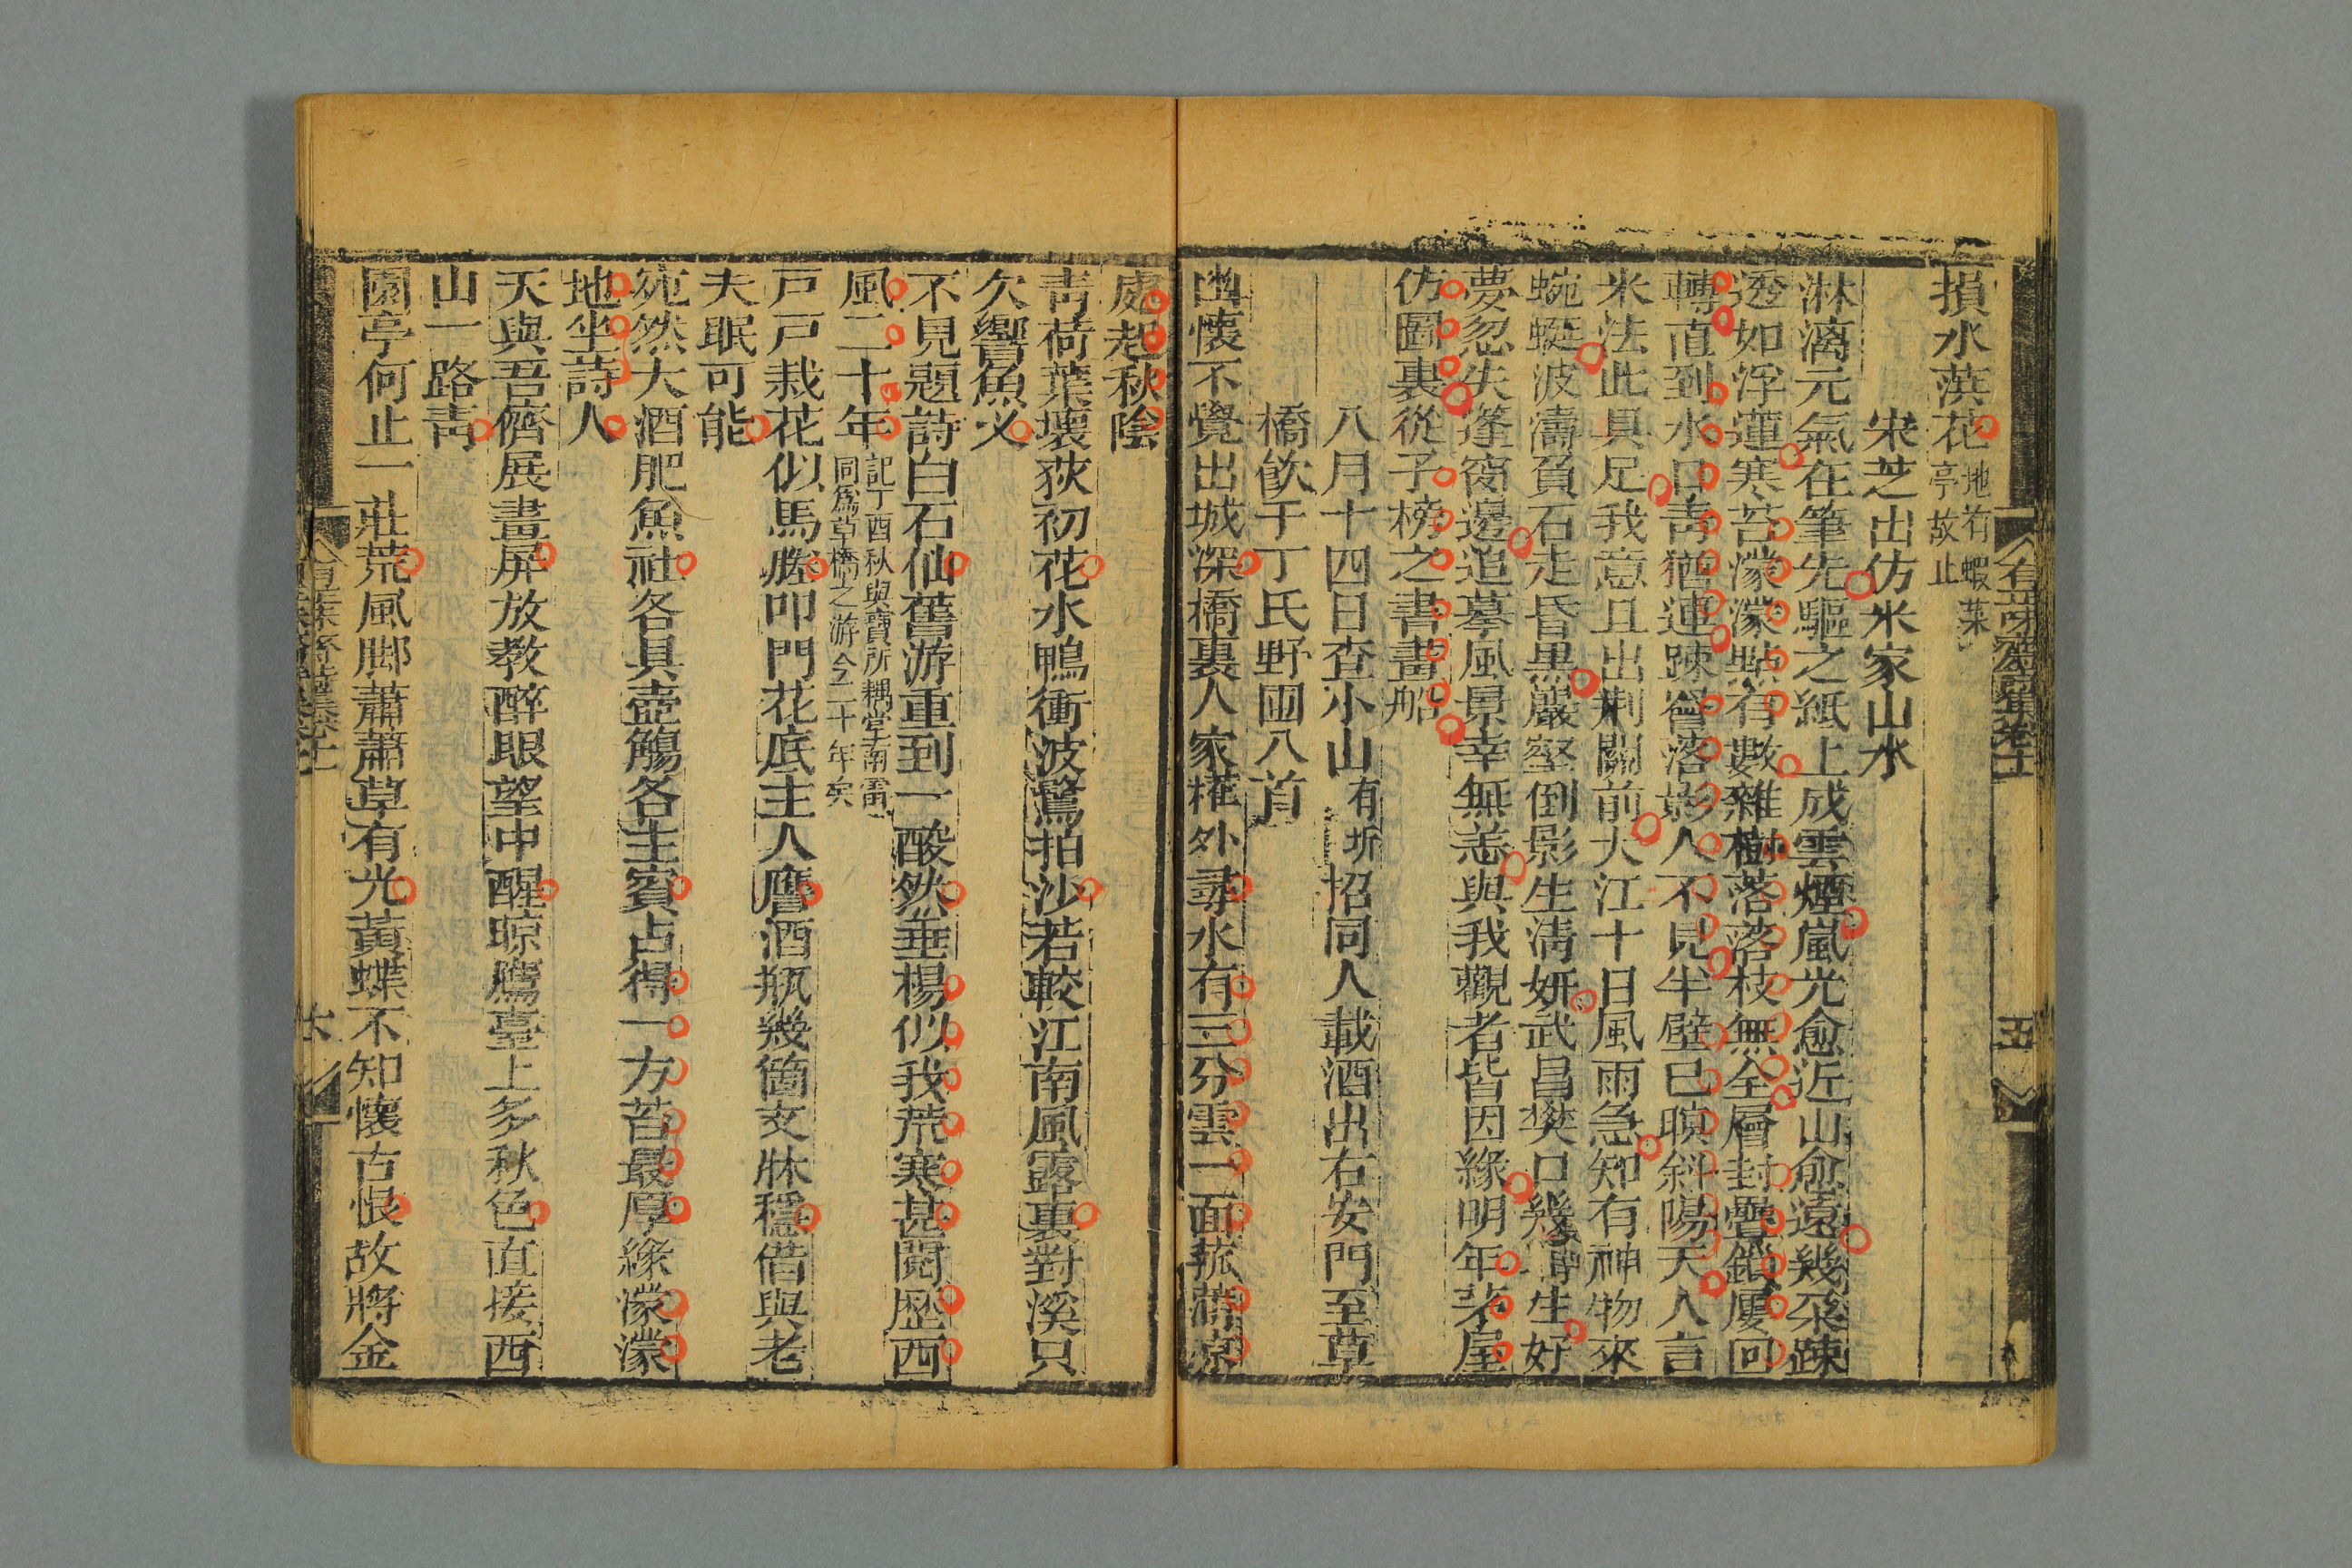 損水葓花地有蝦菜亭故止
宋芝出仿米家山水
淋漓元氣在筆先驅之紙上成雲煙嵐光愈近山愈遠幾朶踈
透如浮蓮寒苔濛濛點有數雜樹落落枝無全層封疊鎖屢回
轉直到水口靑猶連踈簷落影人不見半壁已暝斜陽天人言
米法此具足我意且出荆關前大江十日風雨急知有神物來
蜿蜒波濤負石走昏黑巖壑倒影生淸妍武昌樊口幾生好
夢忽失篷窗邊追摹風景幸無恙與我觀者皆因緣明年茅屋
仿圖裏從子榜之書畫船
八月十四日查小山有圻招同人載酒出右安門至草
橋飲于丁氏野園八首
幽懷不覺出城深橋裏人家權外尋水有三分雲一面菰蒲凉
處起秋陰
靑荷葉壞荻初花水鴨衝波驚拍沙若較江南風露裏對溪只
欠響魚义
不見題詩白石仙舊游重到一酸然垂楊似我荒寒甚閱歴西
風二十年記丁酉秋與寶所耦堂南雷同爲草橋之游今二十年矣
戸戸栽花似馬塍叩門花底主人譍酒瓶幾箇支牀穩借與老
夫眠可能
菀然大酒肥魚社各具壺觴各主賓占得一方苔最厚綠濛濛
地坐詩人
天與吾儕展畫屏放教醉眼望中醒晾鷹臺上多秋色直接西
山一路靑
園亭何止一莊荒風脚蕭蕭草有光黃蝶不知懷古恨故將金